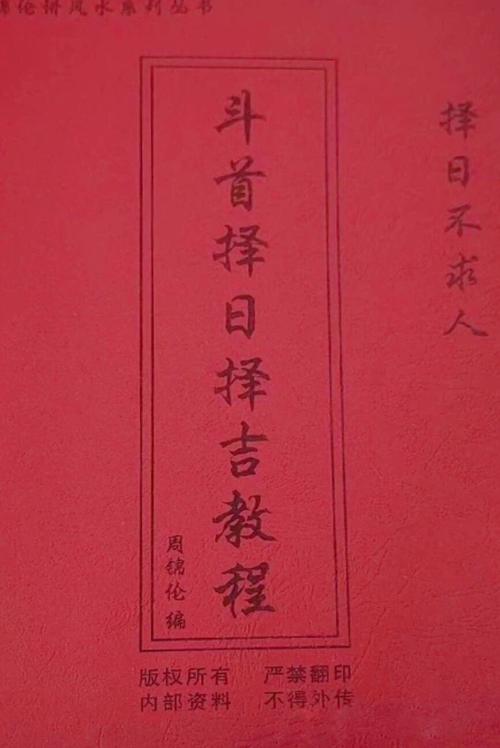 锦伦讲风水系列丛书
择日不求人
斗首择日择吉教程
周锦伦编
版权所有 严禁翻印
内部资料 不得外传